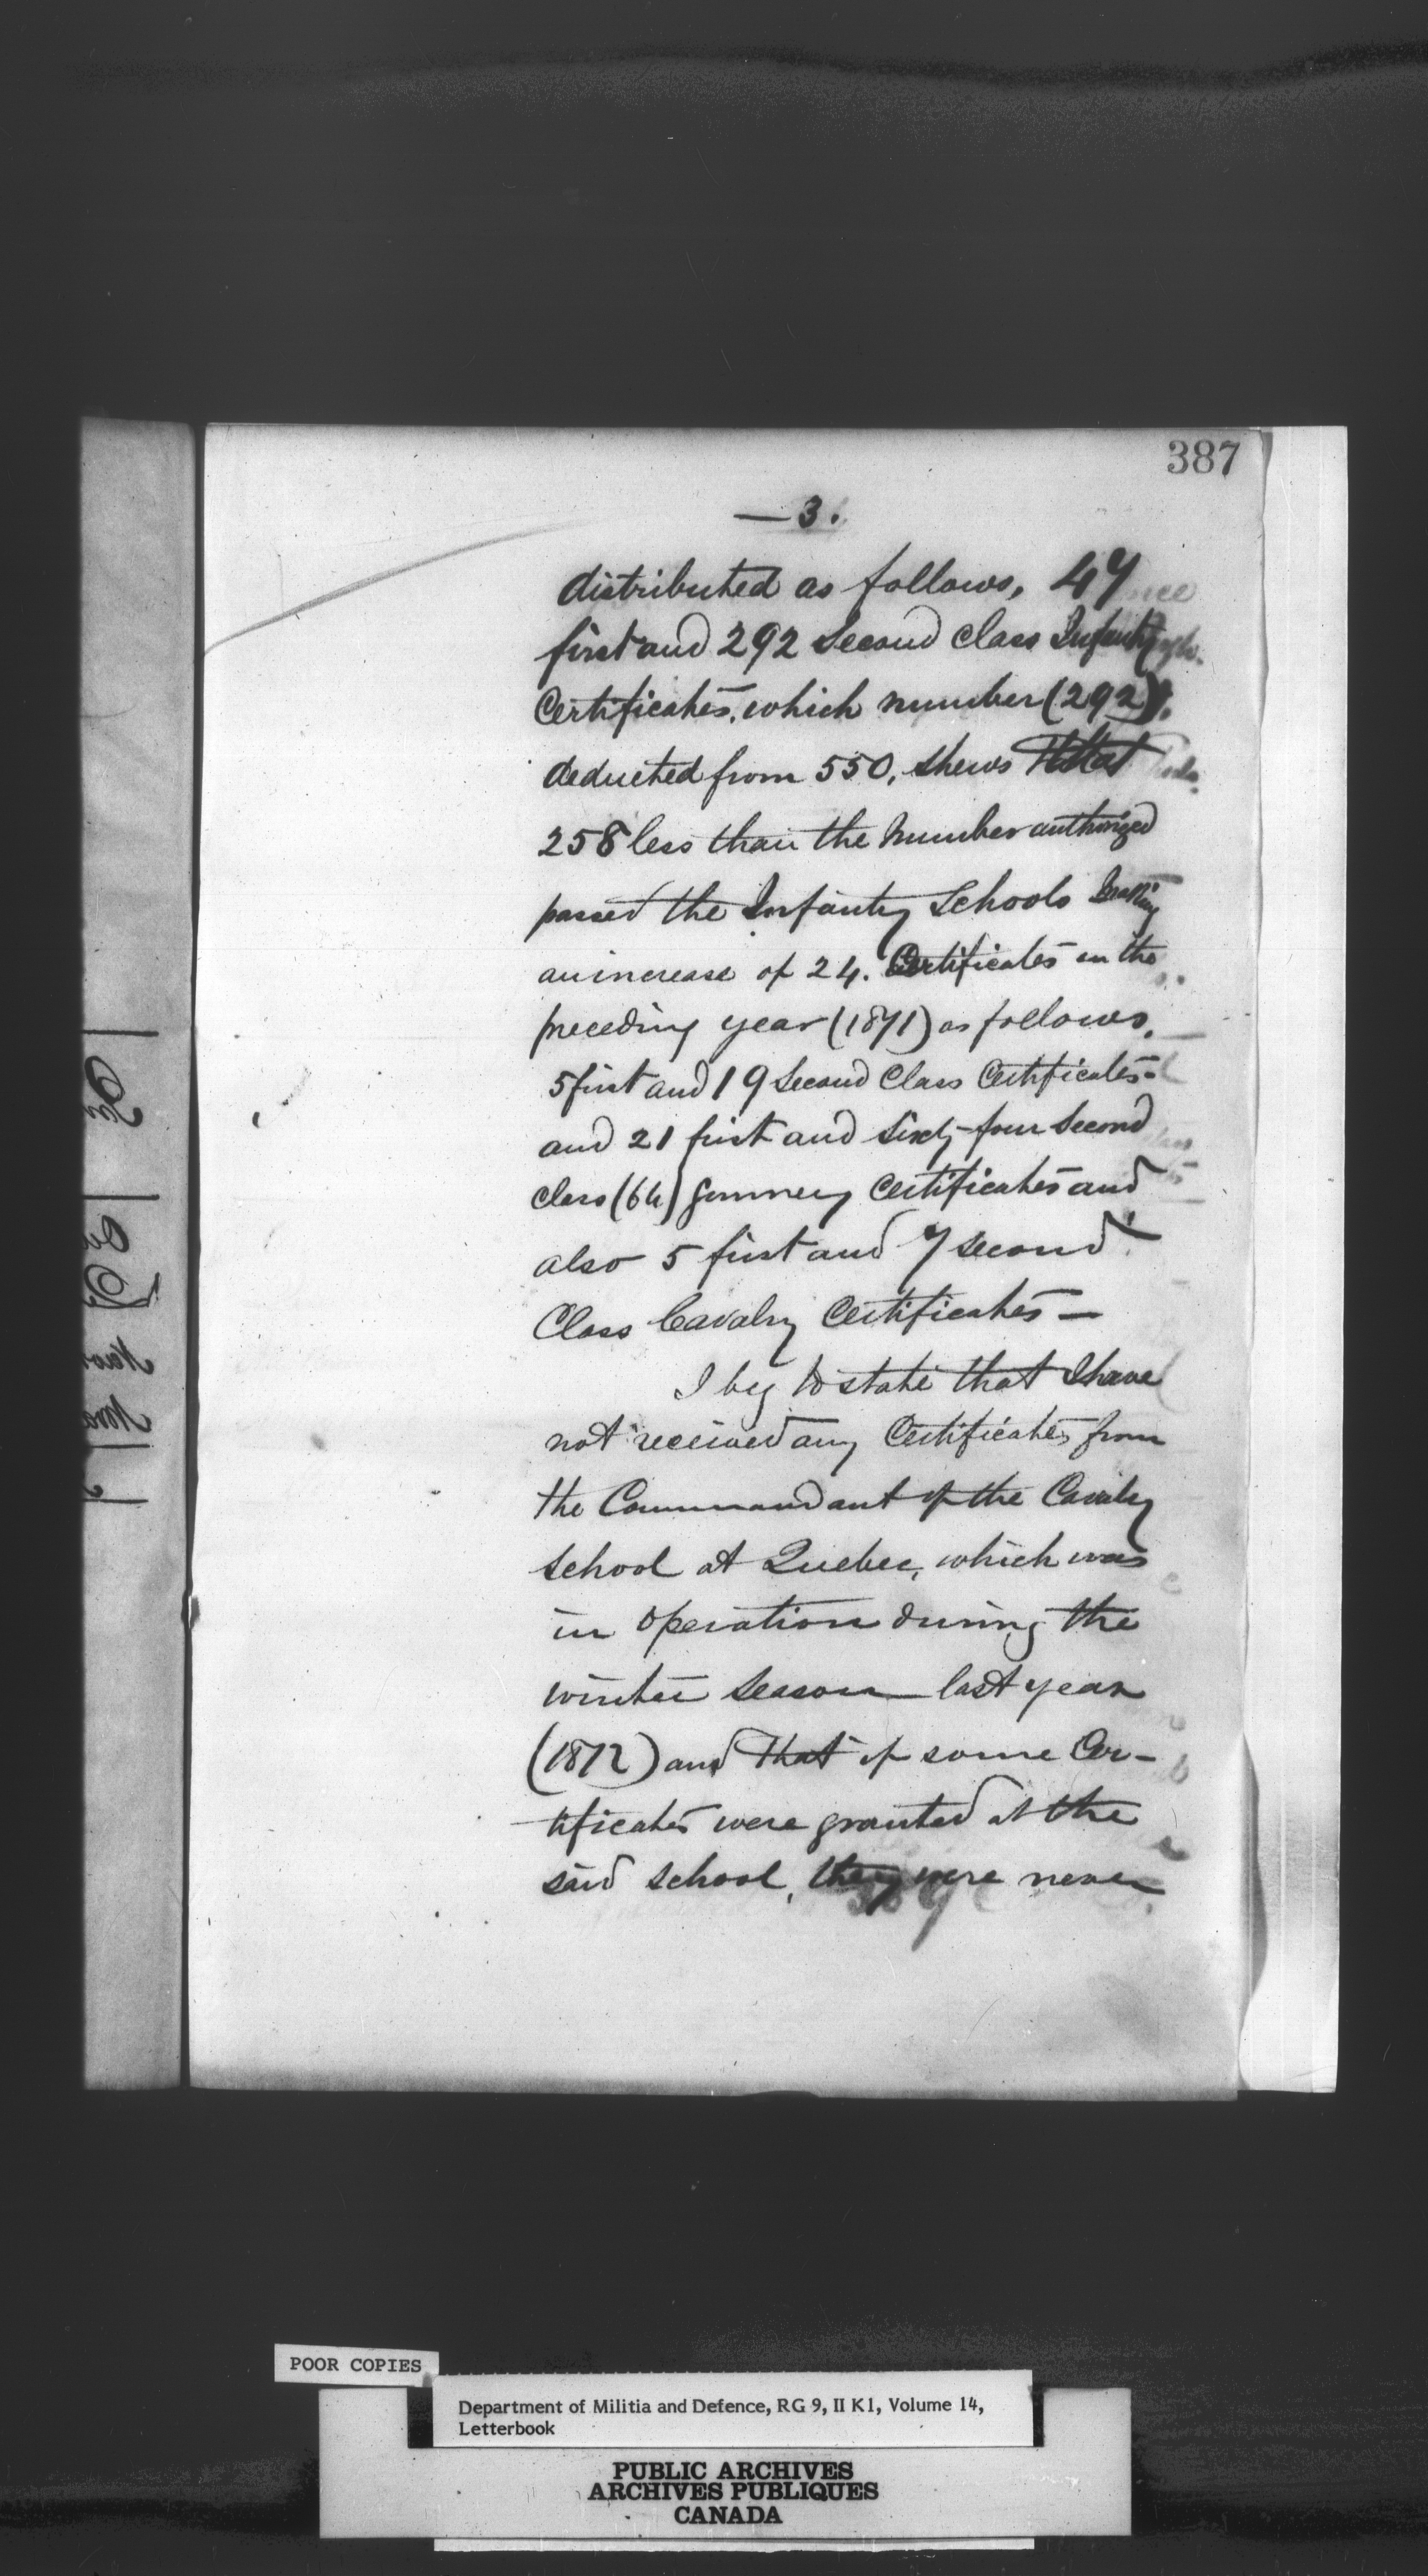 387
— 3.
distributed as follows, 47
first and 292 Second Class Infantry
Certificates, which number (292),
deducted from 550, shews that
258 less than the number authorized
passed the Infantry Schools making
an increase of 24. Certificates in the
preceding year (1871) as follows.
5 first and 19 Second Class Certificates—
and 21 first and Sixty-four Second
Class (64) Gunnery Certificates and
also 5 first and 7 Second
Class Cavalry Certificates —
I beg to state that I have
not received any Certificates from
the Commandant of the Cavalry
School at Quebec, which was
in operation during the
winter Season last year
(1872) and that if some Cer-
tificates were granted at the
said School, they were never
POOR COPIES
Department of Militia and Defence, RG 9, II K1, Volume 14,
Letterbook
PUBLIC ARCHIVES
ARCHIVES PUBLIQUES
CANADA